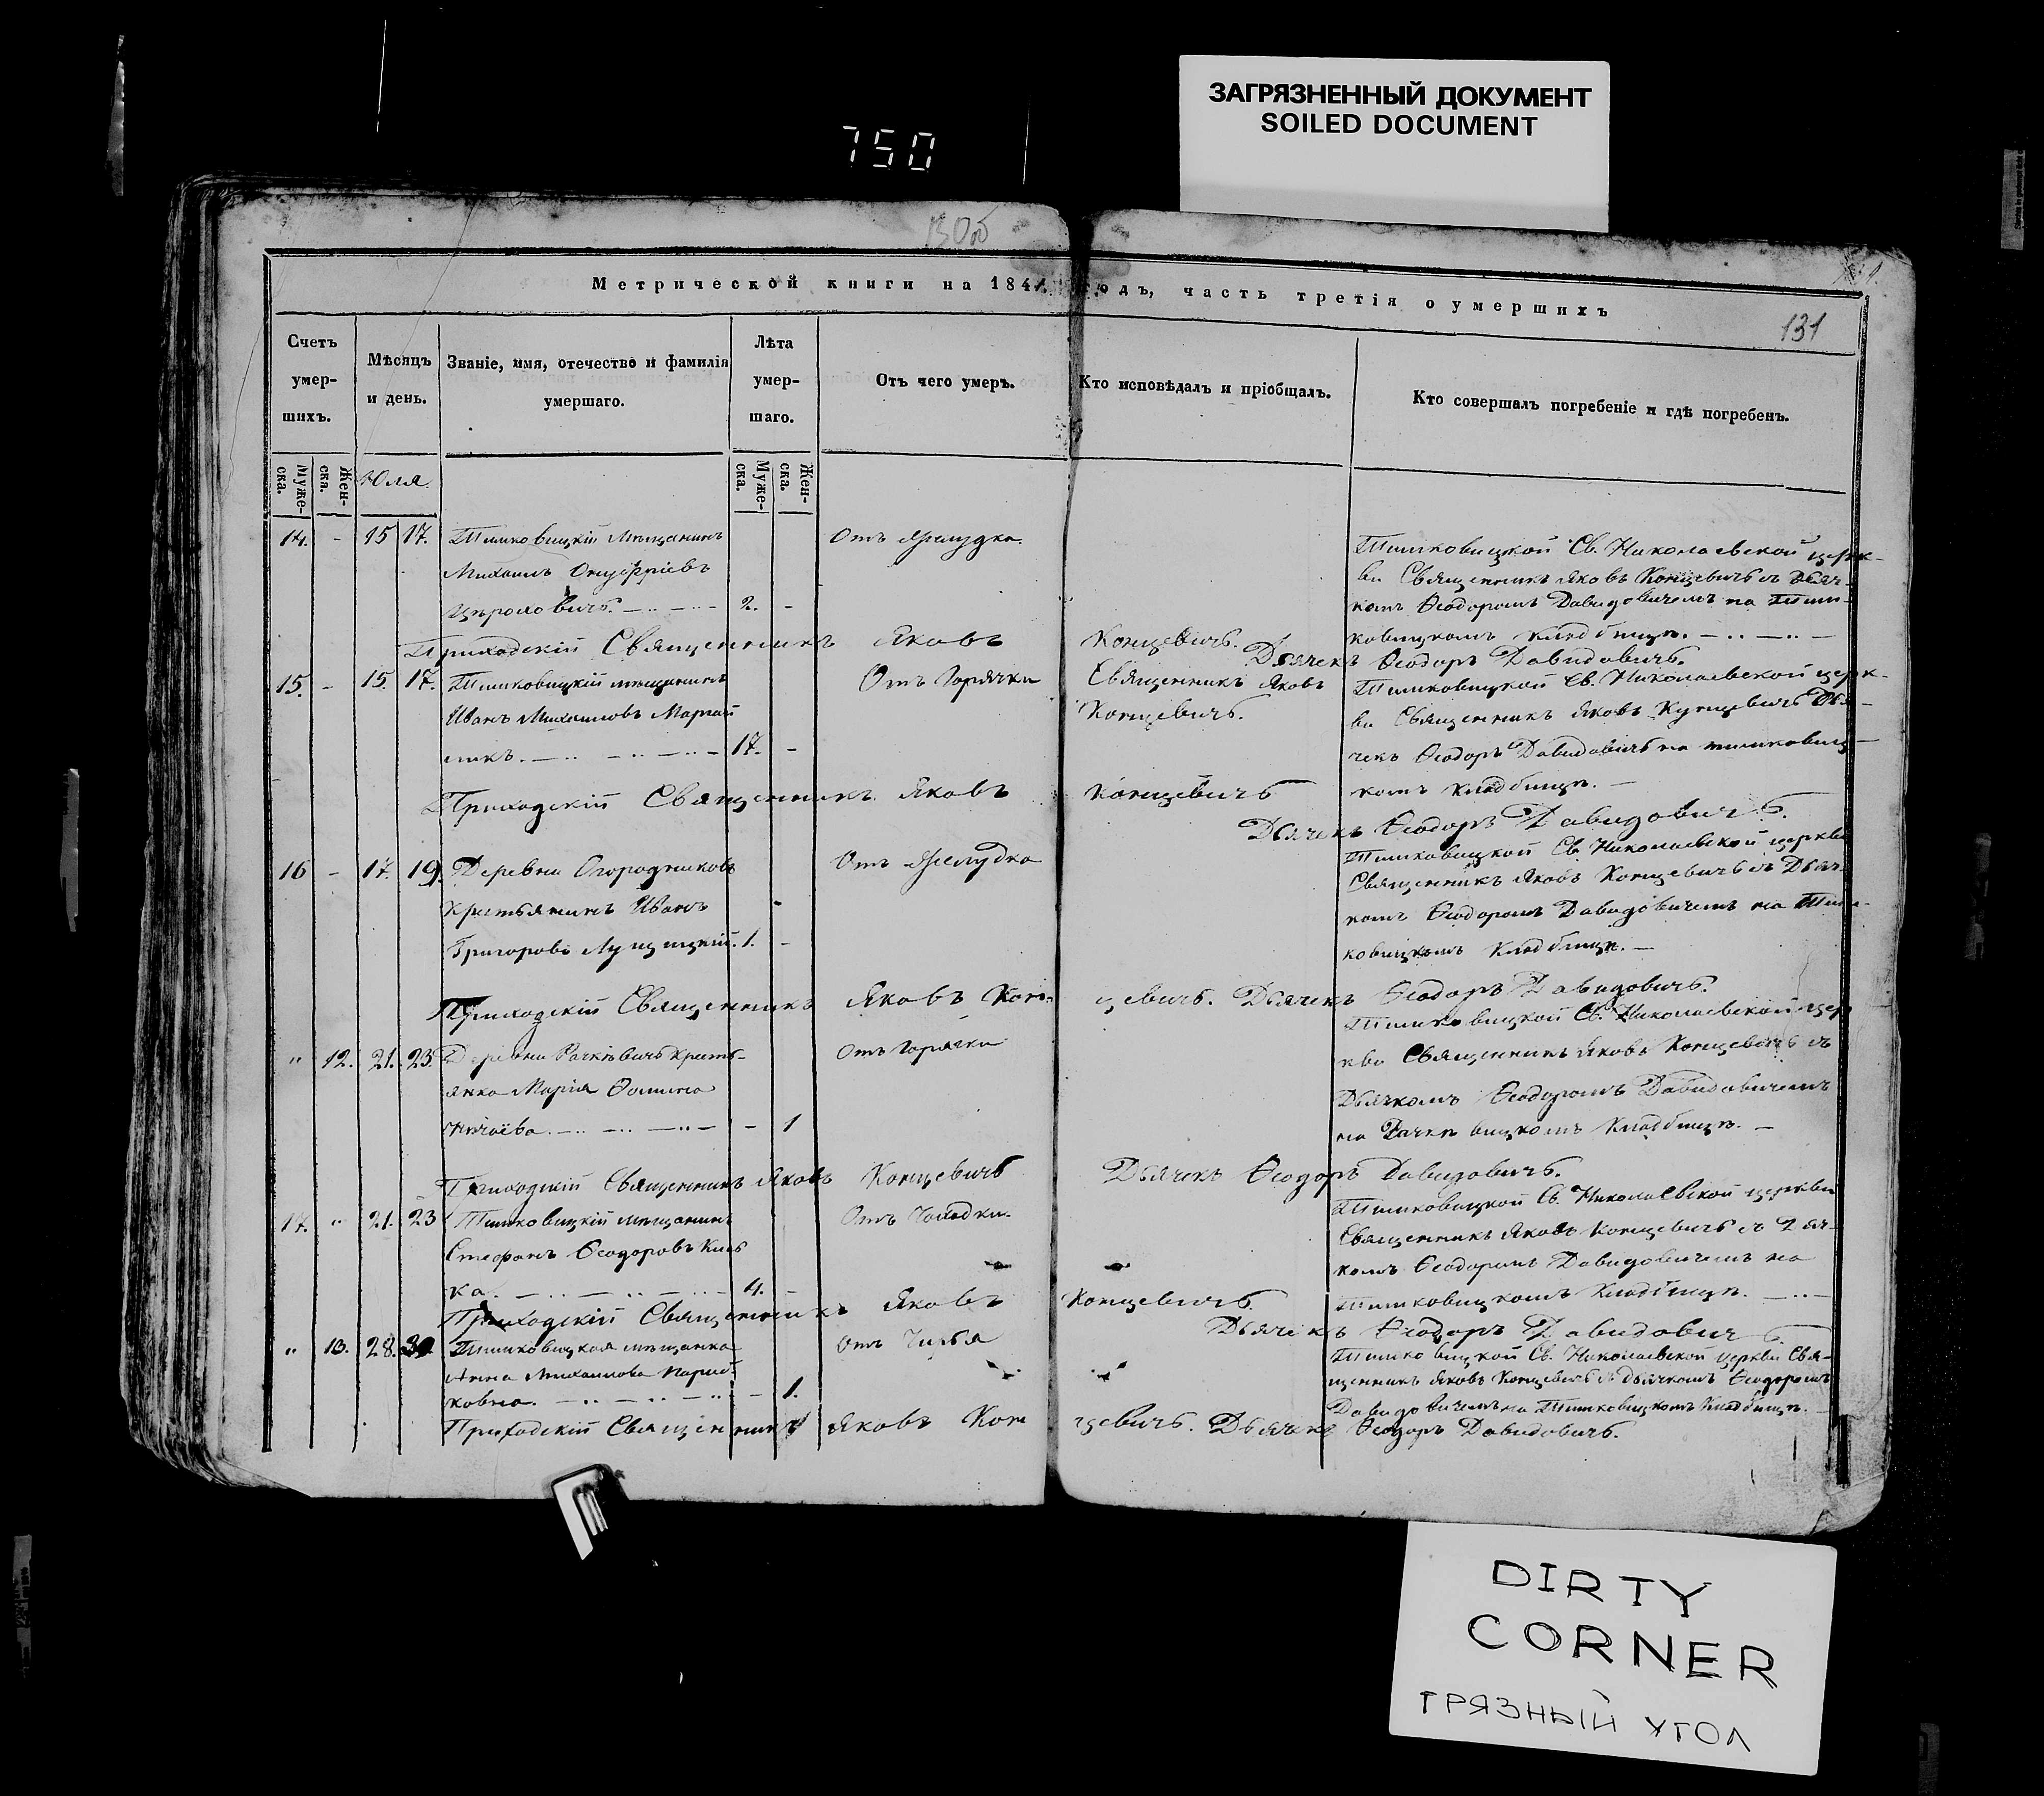 ЗАГРЯЗНЕННЫЙ ДОКУМЕНТ
SOILED DOCUMENT
750
130об
Метрической книги на 1841 годъ, часть третія о умершихъ
131
Счетъ умершихъ.
Мѣсяцъ и день.
Званіе, имя, отечество и фамилія умершаго.
Лѣта умершаго.
Отъ чего умеръ.
Кто исповѣдалъ и пріобщалъ.
Кто совершалъ погребеніе и гдѣ погребенъ.
Мужеска.
Женска.
Юля.
Мужеска.
Женска.
14. - 15 17. Тимковицкій мѣщанинъ
Михаилъ Онуфріевъ
2. -
Отъ желудка.
Тимковицкой Св. Николаевской церк-
ви Священникъ Яковъ Концевичь съ дьяч-
комъ Ѳеодоромъ Давидовичемъ на Тим-
ковицкомъ кладбищѣ.
Приходскій Священникъ Яковъ Концевичь.
Дьячекъ Ѳеодоръ Давидовичь.
15. - 15. 17. Тимковицкій мѣщанинъ
Иванъ Михаиловъ
никъ. 17. -
Отъ Горячки
Священникъ Яковъ
Концевичь.
Тимковицкой Св. Николаевской церк-
ви Священникъ Яковъ Куцевичь Дья-
чекъ Ѳеодоръ Давидовичь на тимковиц-
комъ кладбищѣ.
Приходскій Священникъ Яковъ Концевичь
Дьячекъ Ѳеодоръ Давидовичь.
16 - 17. 19. Деревни Огородниковъ
крестьянинъ Иванъ
Григоровъ 1. -
Отъ желудка
Тимковицкой Св. Николаевской церкви
Священникъ Яковъ Концевичь съ Дьяч-
комъ Ѳеодоромъ Давидовичемъ на Тим-
ковицкомъ кладбищѣ.
Приходскій Священникъ Яковъ Концевичь. Дьячекъ Ѳеодоръ Давидовичь.
" 12. 21. 23. Деревни Рачкѣвичь кресть-
янка Марія Ѳомина
- 1
Отъ Горячки
Тимковицкой Св. Николаевской цер
кви Священникъ Яковъ Концевичь съ
Дьячкомъ Ѳеодоромъ Давидовичемъ
на Рачкѣвицкомъ кладбищѣ.
Приходскій Священникъ Яковъ Концевичь Дьячекъ Ѳеодоръ Давидовичь.
17. " 21. 23 Тимковицкій мѣщанинъ
Стефанъ Ѳеодоровъ
ка. 4. -
Отъ
Тимковицкой Св. Николаевской церкви
Священникъ Яковъ Концевичь съ Дьяч-
комъ Ѳеодоромъ Давидовичемъ на
Тимковицкомъ кладбищѣ.
Приходскій Священникъ Яковъ Концевичь.
Дьячекъ Ѳеодоръ Давидовичь.
" 13. 28. 30. Тимковицкая мѣщанка
Анна Михаилова
ковна. - 1.
Отъ Чирья
Тимковицкой Св. Николаевской церкви Свя-
щенникъ Яковъ Концевичь съ дьячкомъ Ѳеодоромъ
Давидовичемъ на Тимковицкомъ кладбищѣ.
Приходскій Священникъ Яковъ Концевичь. Дьячекъ Ѳеодоръ Давидовичь.
DIRTY
CORNER
ГРЯЗНЫЙ УГОЛ